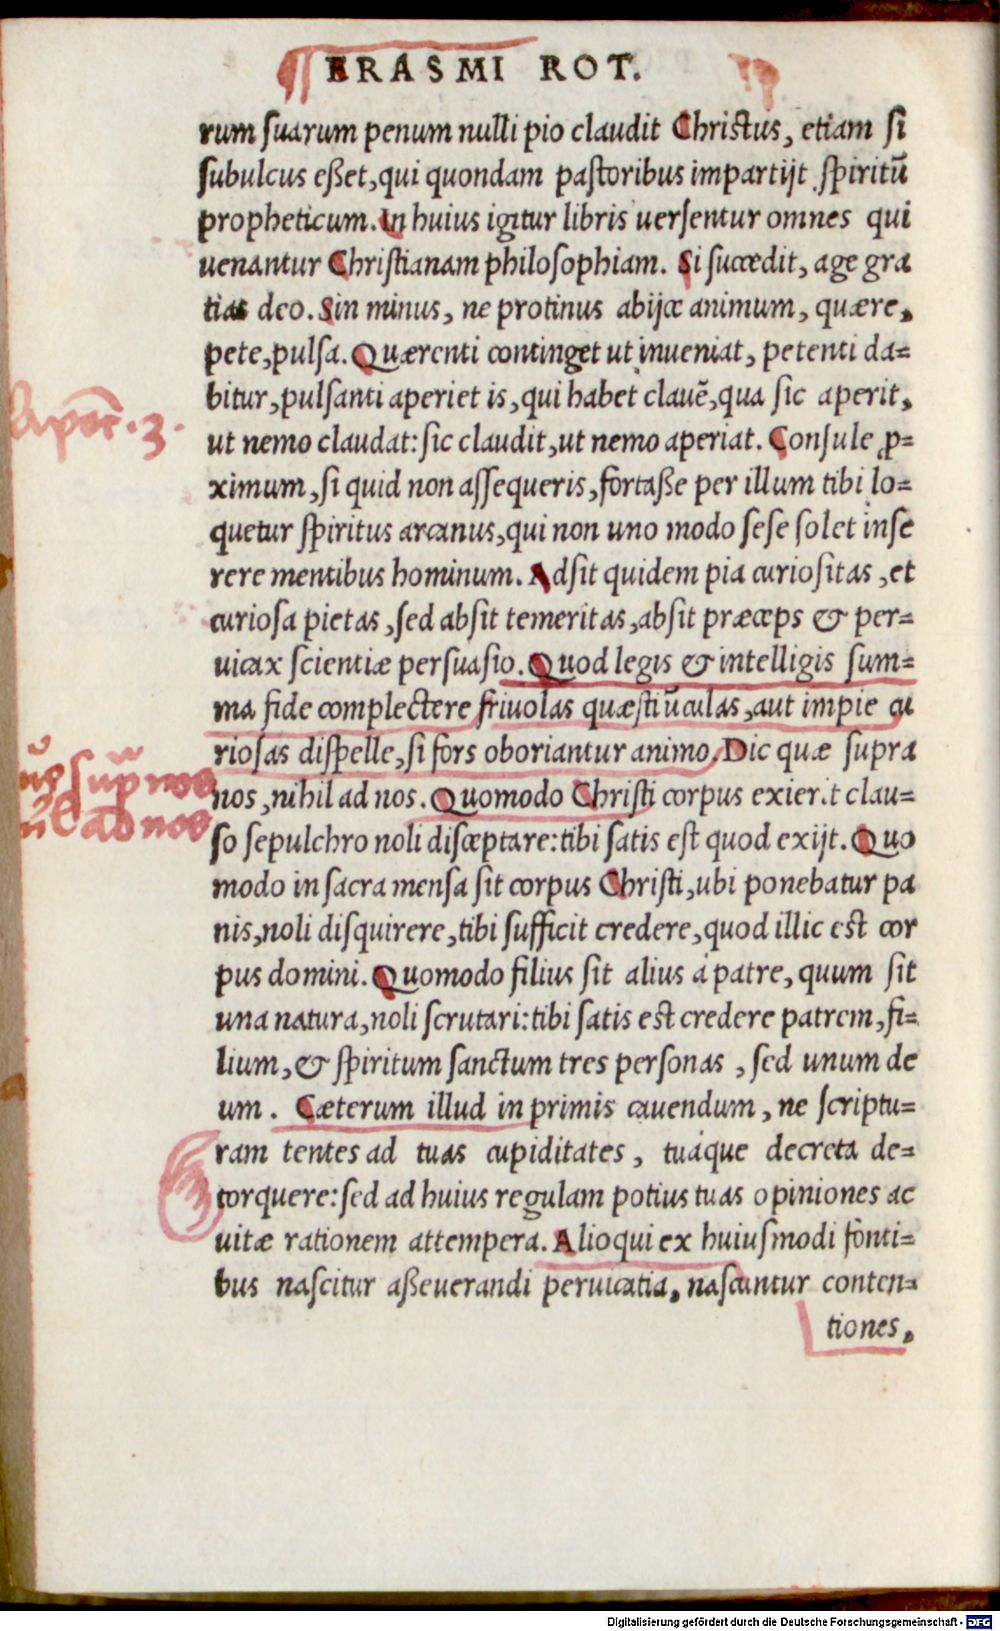 ERASMI ROT.
rum suarum penum nulli pio claudit Christus, etiam si
subulcus eßet, qui quondam pastoribus impartijt spiritū
propheticum. In huius igitur libris uersentur omnes qui
uenantur Christianam philosophiam. Si succedit, age gra
tias deo. Sin minus, ne protinus abijce animum, quære,
pete, pulsa. Quærenti continget ut inueniat, petenti da=
bitur, pulsanti aperiet is, qui habet clauē, qua sic aperit,
Apoc. 3.
ut nemo claudat: sic claudit, ut nemo aperiat. Consule ꝓ=
ximum, si quid non assequeris, fortaße per illum tibi lo=
quetur spiritus arcanus, qui non uno modo sese solet inse
rere mentibus hominum. Adsit quidem pia curiositas, et
curiosa pietas, sed absit temeritas, absit præceps & per=
uicax scientiæ persuasio. Quod legis & intelligis sum=
ma fide complectere friuolas quæstiūculas, aut impie cu
riosas dispelle, si fors oboriantur animo. Dic quæ supra
sup̄ nos
nos, nihil ad nos. Quomodo Christi corpus exierit clau=
ad nos
so sepulchro noli disceptare: tibi satis est quod exijt. Quo
modo in sacra mensa sit corpus Christi, ubi ponebatur pa
nis, noli disquirere, tibi sufficit credere, quod illic est cor
pus domini. Quomodo filius sit alius á patre, quum sit
una natura, noli scrutari: tibi satis est credere patrem, fi=
lium, & spiritum sanctum tres personas, sed unum de
um. Cæterum illud in primis cauendum, ne scriptu=
ram tentes ad tuas cupiditates, tuáque decreta de=
torquere: sed ad huius regulam potius tuas opiniones ac
uitæ rationem attempera. Alioqui ex huiusmodi fonti=
bus nascitur aßeuerandi peruicatia, nascuntur conten=
tiones,
Digitalisierung gefördert durch die Deutsche Forschungsgemeinschaft - DFG